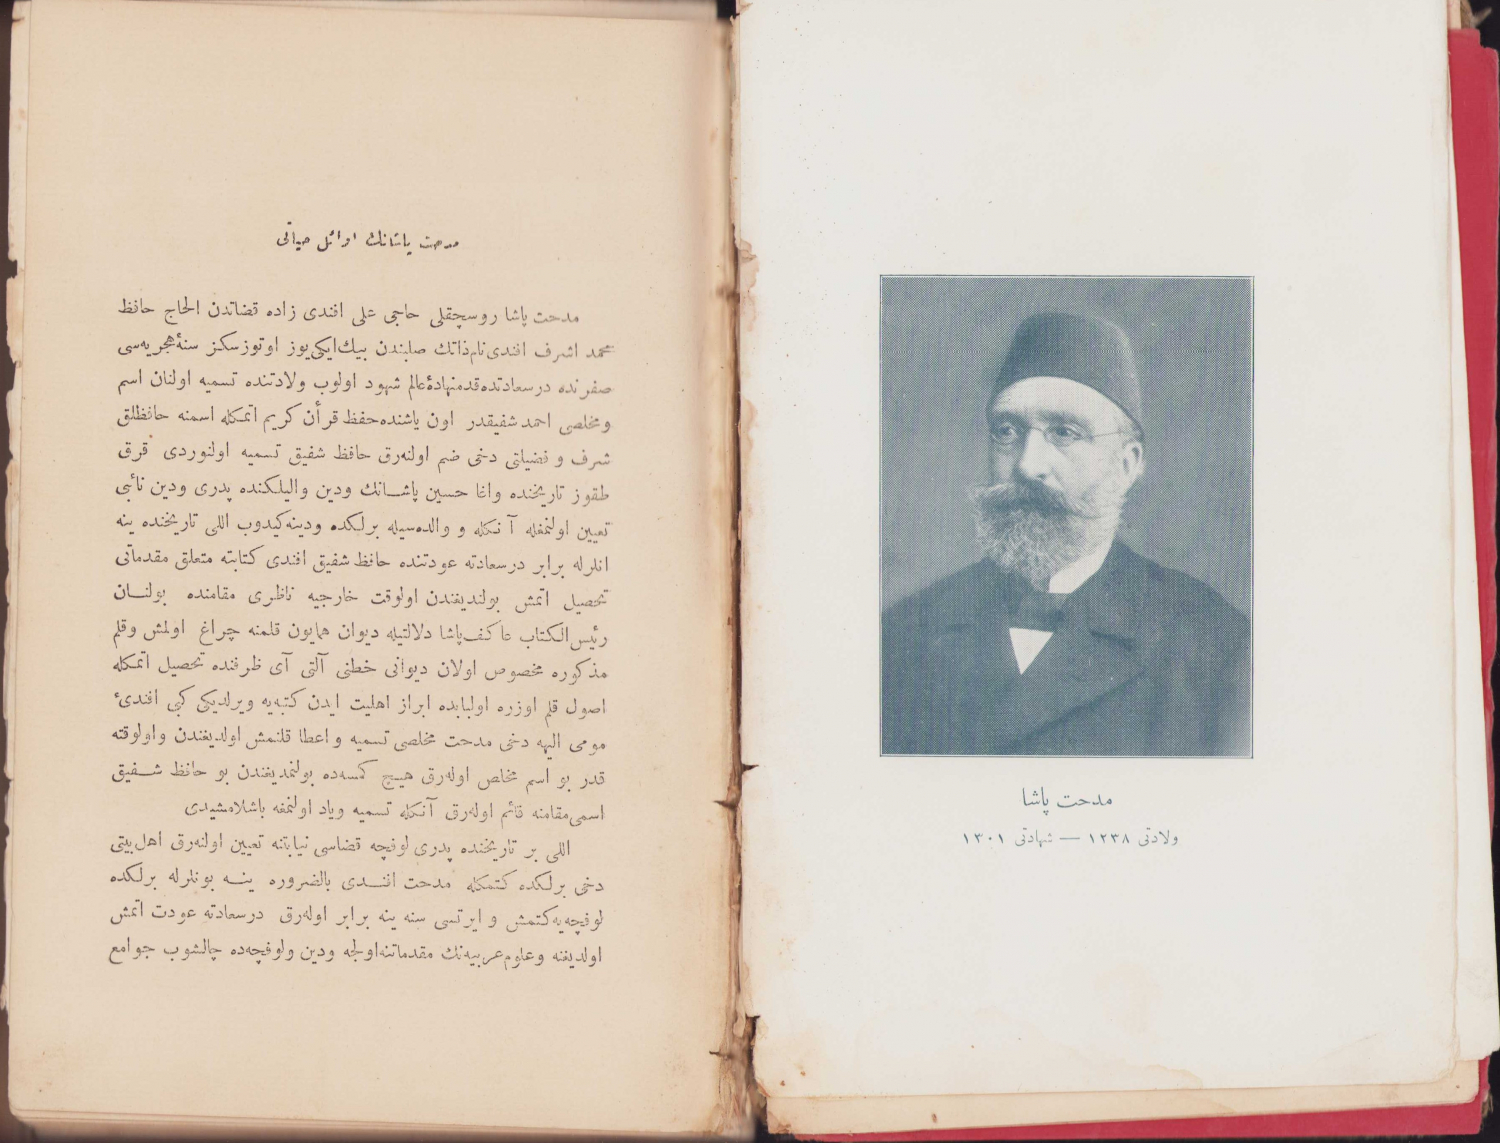 مدحت پاشا
ولادتی ١٢٣٨ — شهادتی ١٣٠١
مدحت پاشانك اوائل حیاتی
مدحت پاشا روسچقلی حاجی علی افندی زاده قضاتدن الحاج حافظ
محمد اشرف افندی نام ذاتك صلبندن بیك ایکی یوز اوتوز سکز سنۀ هجریه‌سی
صفرنده درسعادتده قدمنهادۀ عالم شهود اولوب ولادتنده تسمیه اولنان اسم
و مخلصی احمد شفیقدر اون یاشنده حفظ قرأن کریم اتمکله اسمنه حافظلق
شرف و فضیلتی دخی ضم اولنه‌رق حافظ شفیق تسمیه اولنوردی قرق
طقوز تاریخنده واغا حسین پاشــانك ودین والیلکنده پدری ودین نائبی
تعیین اولنمغله آنکله و والده‌سیله برلکده ودینه کیدوب اللی تاریخنده ینه
انلرله برابر درسعادته عودتنده حافظ شفیق افندی کتابته متعلق مقدماتی
تحصیل اتمش بولندیغندن اولوقت خارجیه ناظری مقامنده بولنــان
رئیس الکتاب عاکف پاشا دلالتیله دیوان همایون قلمنه چراغ اولمش وقلم
مذکوره مخصوص اولان دیوانی خطنی آلتی آی ظرفنده تحصیل اتمکله
اصول قلم اوزره اولبابده ابراز اهلیت ایدن کتبه‌یه ویرلدیکی کبی افندیٔ
مومی الیهه دخی مدحت مخلصی تسمیه و اعطا قلنمش اولدیغندن و اولوقته
قدر بو اسم مخلص اوله‌رق هیــچ کمسه‌ده بولنمدیغندن بو حافظ شــفیق
اسمی مقامنه قائم اوله‌رق آنکله تسمیه ویاد اولنمغه باشلامشیدی
اللی بر تاریخنده پدری لوفچه قضاسی نیابتنه تعیین اولنه‌رق اهل بیتی
دخی برلکده کتمکله مدحت افنــدی بالضروره ینــه بونلرله برلکده
لوفچه‌یه کتمش و ایرتسی سنه ینه برابر اوله‌رق درسعادته عودت اتمش
اولدیغنه وعلوم عربیه‌نك مقدماتنه اولجه ودین ولوفچه‌ده چالشوب جوامع